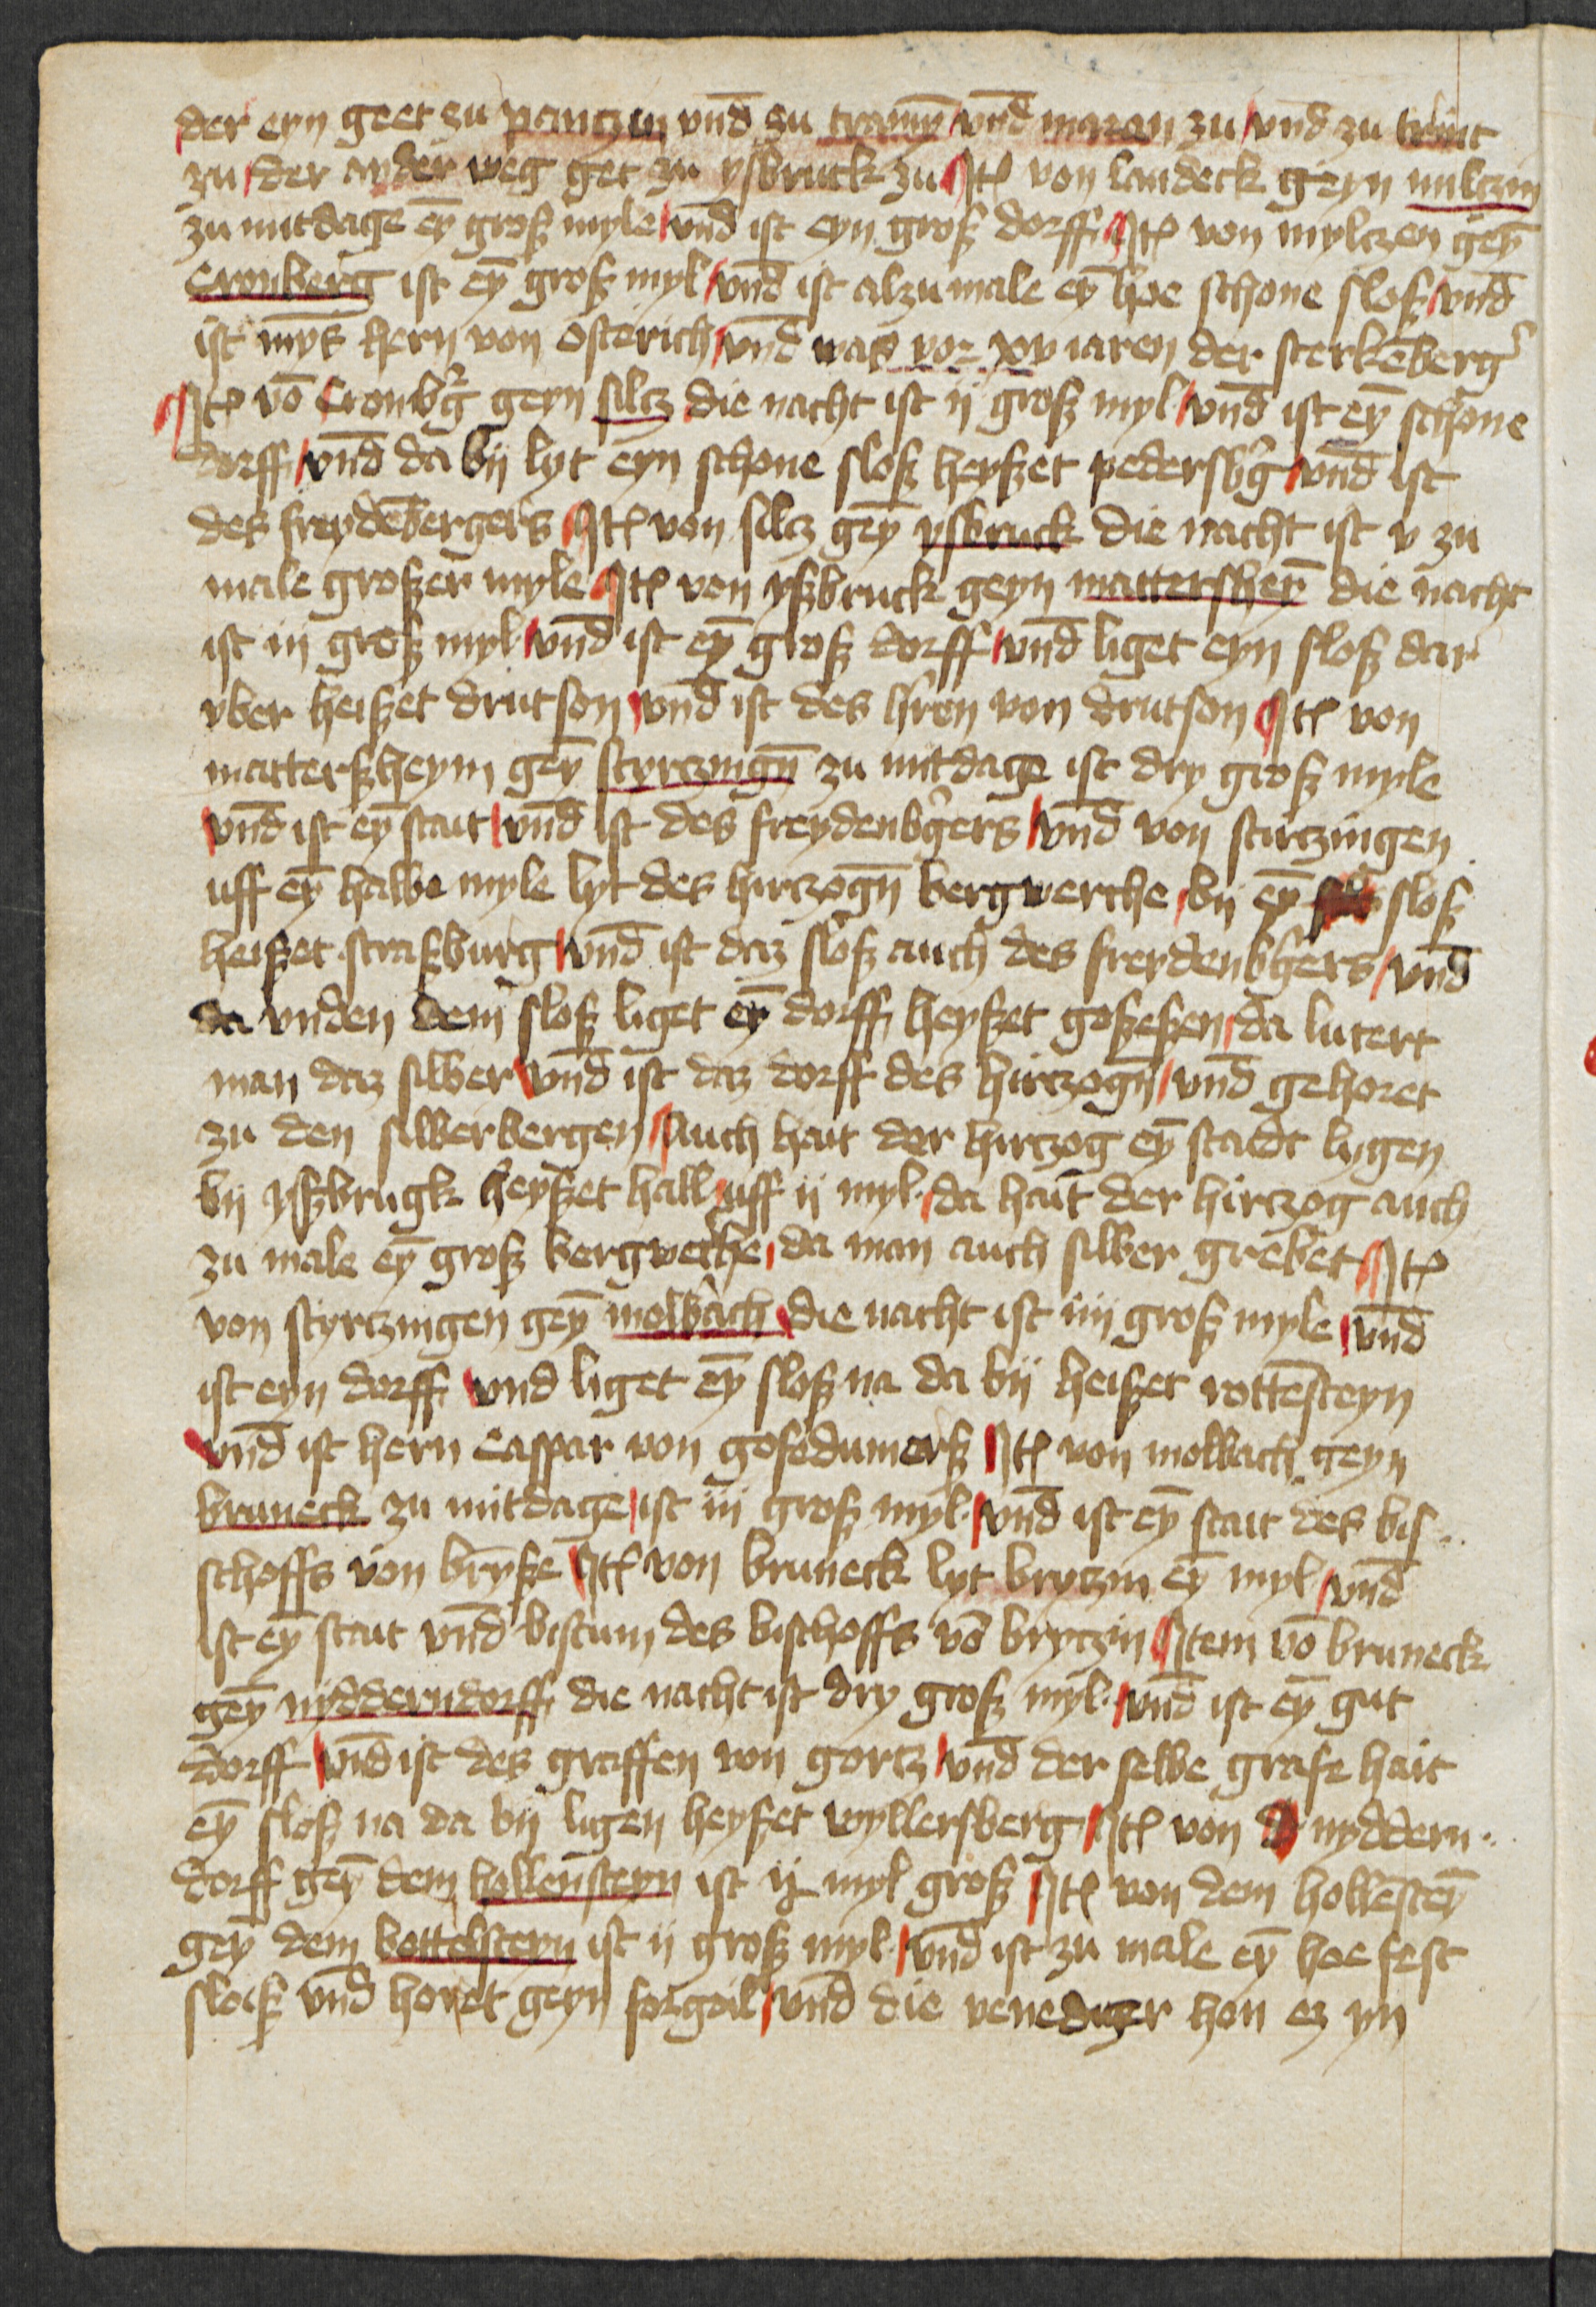 der eyn geet zu pantzin vnd zu tramyn vnd maran zu vnd zu trint
zu der ander weg get zu ysbruck zu Itē von landeck geyn miltzin
zu mitdage eȳ groß myle vnd ist eyn groß dorff Itē von myltzen geȳ
Cronberg ist eȳ groß myl vnd ist alzumale eȳ hoe schone sloß vnd
ist mȳs hern von osterich vnd was vor xv iaren der sterkēberg'
Itē vō Cronbg̓ geyn siltz die nacht ist ij groß myl vnd ist eȳ schone
dorff vnd da bij lyt eyn schone sloß heyßet pedersbg̓ vnd ist
des freydēbergers Itē von siltz geȳ ysbruck die nacht ist v zu
male großer myle Itē von yßbruck geyn mattersheȳ die nacht
ist iij groß myl vnd ist eȳ groß dorff vnd liget eyn sloß dar
vber heißet drutson vnd ist des h̓ren von drutson Itē von
matterßheym geȳ styrtzingn̄ zu mitdage ist dry groß myle
vnd ist eȳ stait vnd ist des freydenbg̓ers vnd von startzingen
uff eȳ halbe myle lyt des hirtzogn̄ bergwerche bij eȳ sloß
heißet straßburg vnd ist daz sloß auch des freydenbg̓ers vnd
da vnden dem sloß liget eȳ dorff heyßet goßeßen da lutert
man daz silber vnd ist daz dorff des hirtzogn̄ vnd gehoret
zu den silberbergen Auch hait der hirtzog eȳ stadt lygen
bij yßbrugk heyßet hall uff ij myl da hait der hirtzog auch
zu male eȳ groß bergwerche da man auch silber grebet Itē
von styrtzingen geȳ molbach die nacht ist iiij groß myle vnd
ist eyn dorff vnd liget eȳ sloß na da bij heißet rottēsteyn
vnd ist hern Caspar von gosedumerß Itē von molbach geyn
bruneck zu mitdage ist iij groß myl vnd ist eȳ stait des bis
schoffs von bryße Itē von bruneck lyt brytzin eȳ myl vnd
ist eȳ stait vnd bistum des bischoffs vō brytzin Item vō bruneck
geȳ nydderndorff die nacht ist dry groß myl vnd ist eȳ gut
dorff vnd ist des graffen von gortz vnd der selbe grafe hait
eȳ sloß na da bij ligen heyßet wyllersberg Itē von nyddern
dorff geȳ dem hollensteyn ist ij myl groß Itē von dem hollēsteȳ
geȳ dem bottelsteyn ist ij groß myl vnd ist zu male eȳ hoe fest
sloiß vnd horet geyn forgail vnd die venediger hon ez yn